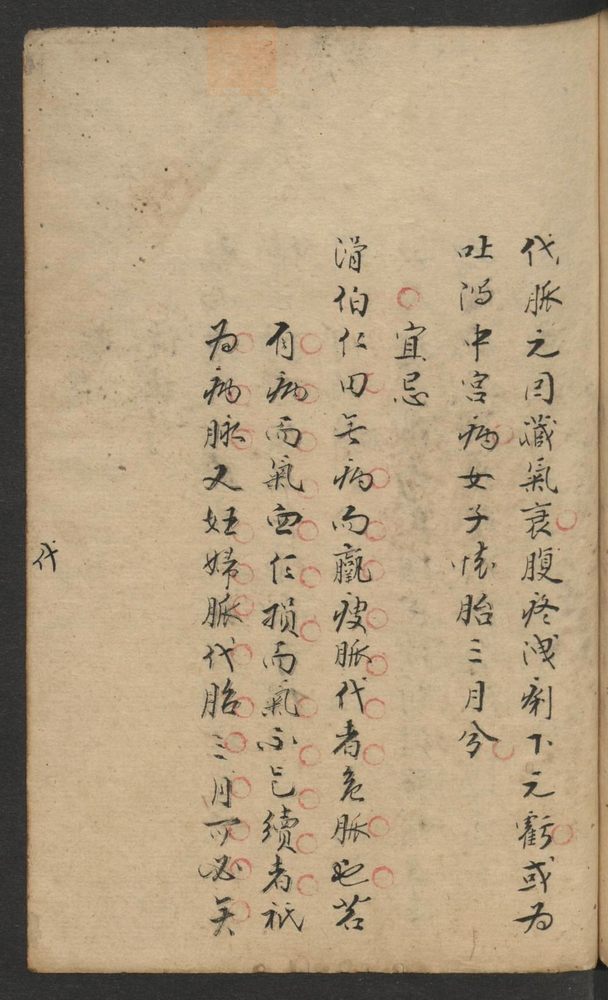 代脈元因臟氣衰腹疼洩痢下元虧或為
吐瀉中宮病女子懷胎三月兮
宜忌
滑伯仁曰無病而羸瘦脈代者危脈也若
有病而氣血乍損而氣不已續者祇
為病脉又妊婦脈代胎三月可必矣
代